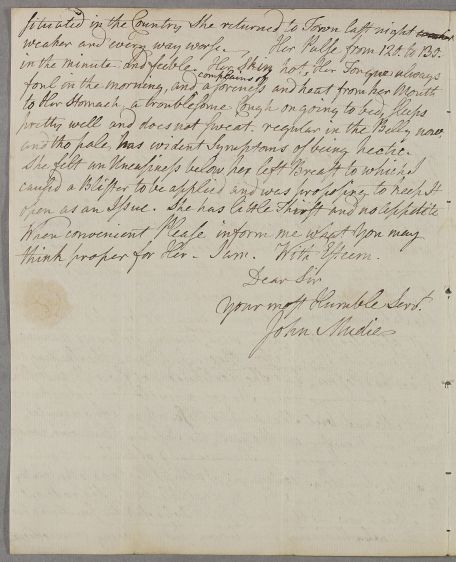 situated in the Country She returned to Town last night
weaker and every way worse. Her Pulse from 120. to 130.
in the minute and feeble Her Skin hot, Her Tongue always
complains of
foul on the morning, and a soreness and heat from her Mouth
to Her Stomach, a troublesome Cough on going to bed, Sleeps
pretty well and does not Sweat, regular in the Belly now,
and tho pale, has evident Symptoms of being hectic.
She felt an Uneasiness below her left Breast to which I
caused a Blister to be applied and was proposing to keep it
open as an Issue. She has little Thirst and no Appetite
When convenient Please inform me what You may
think proper for Her. I am. With Esteem.
Dear Sir
Your most Humble Servt.
John Mudie